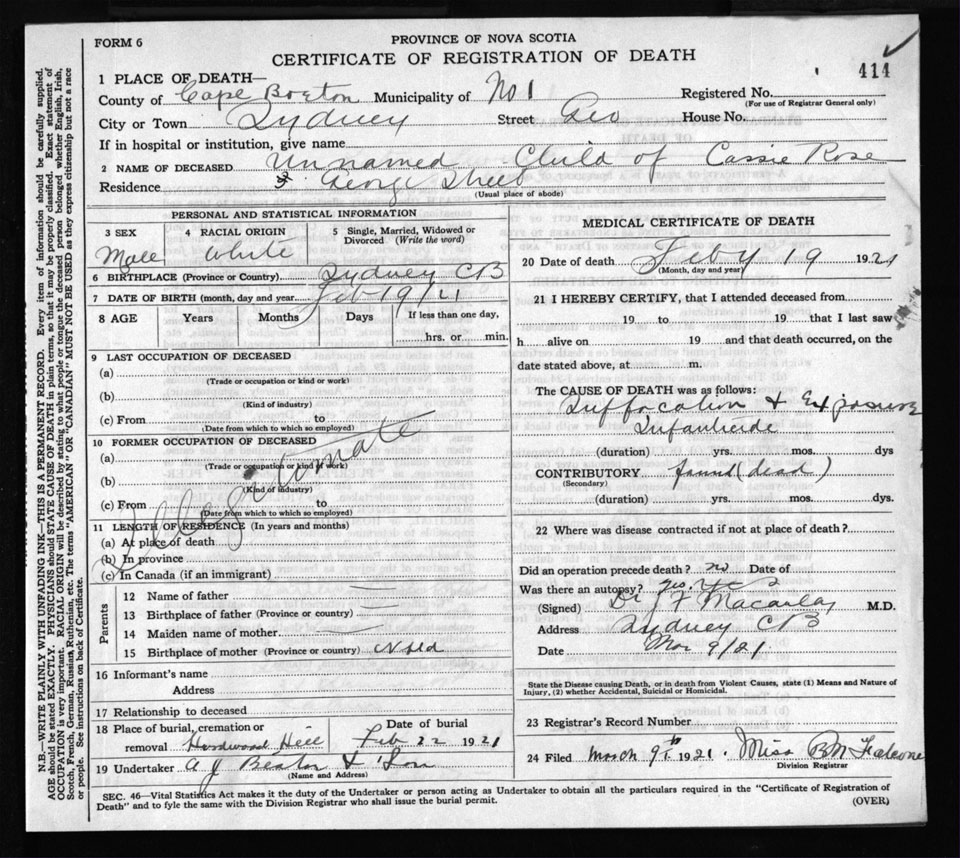 FORM 6
PROVINCE OF NOVA SCOTIA
CERTIFICATE OF REGISTRATION OF DEATH
414
1 PLACE OF DEATH—
County of Cape Breton Municipality of No 1 Registered No.
(For use of Registrar General only)
City or Town Sydney Street Geo House No.
If in hospital or institution, give name
2 NAME OF DECEASED Unnamed Child of Cassie Rose
Residence George Street
(Usual place of abode)
PERSONAL AND STATISTICAL INFORMATION
3 SEX 4 RACIAL ORIGIN 5 Single, Married, Widowed or Divorced (Write the word)
Male White
6 BIRTHPLACE (Province or Country) Sydney CB
7 DATE OF BIRTH (month, day and year) Feb 19/21
8 AGE Years Months Days If less than one day,
hrs. or min.
9 LAST OCCUPATION OF DECEASED
(a)
(Trade or occupation or kind or work)
(b)
(Kind of industry)
(c) From to
(Date from which to which so employed)
10 FORMER OCCUPATION OF DECEASED
(a)
(Trade or occupation or kind of work)
(b)
(Kind of industry)
(c) From to
(Date from which to which so employed)
Illegitimate
11 LENGTH OF RESIDENCE (In years and months)
(a) At place of death
(b) In province
(c) In Canada (if an immigrant)
Parents
12 Name of father
13 Birthplace of father (Province or country)
14 Maiden name of mother
15 Birthplace of mother (Province or country) Nfld
16 Informant's name
Address
17 Relationship to deceased
18 Place of burial, cremation or Date of burial
removal Hardwood Hill Feb 22 1921
19 Undertaker A J Beaton & Son
(Name and Address)
MEDICAL CERTIFICATE OF DEATH
20 Date of death Feby 19 1921
(Month, day and year)
21 I HEREBY CERTIFY, that I attended deceased from
19 to 19 that I last saw
h alive on 19 and that death occurred, on the
date stated above, at m.
The CAUSE OF DEATH was as follows:
Suffocation & Exposure
Infanticide
(duration) yrs. mos. dys
CONTRIBUTORY found (dead)
(Secondary)
(duration) yrs. mos. dys.
22 Where was disease contracted if not at place of death?
Did an operation precede death? no Date of
Was there an autopsy? yes
(Signed) Dr J F Macaulay M.D.
Address Sydney CB
Date Mar 9/21
State the Disease causing Death, or in death from Violent Causes, state (1) Means and Nature of
Injury, (2) whether Accidental, Suicidal or Homicidal.
23 Registrar's Record Number
24 Filed March 9th 1921 Miss BM Falcone
Division Registrar
SEC. 46—Vital Statistics Act makes it duty of the Undertaker or person acting as Undertaker to obtain all the particulars required in the "Certificate of Registration of
Death" and to fyle the same with the Division Registrar who shall issue the burial permit.
(OVER)
N.B.—WRITE PLAINLY WITH UNFADING INK—THIS IS A PERMANENT RECORD. Every item of information should be carefully supplied.
AGE should be stated EXACTLY. PHYSICIANS should STATE CAUSE OF DEATH in plain terms, so that it may be properly classified. Exact statement of
OCCUPATION is very important. RACIAL ORIGIN will be described by stating to what people or tongue the deceased person belonged, whether English, Irish,
Scotch, French, German, Russian, Ruthenian, etc. The terms "AMERICAN" OR "CANADIAN" MUST NOT BE USED as they express citizenship but not a race
or people. See instructions on back of Certificate.